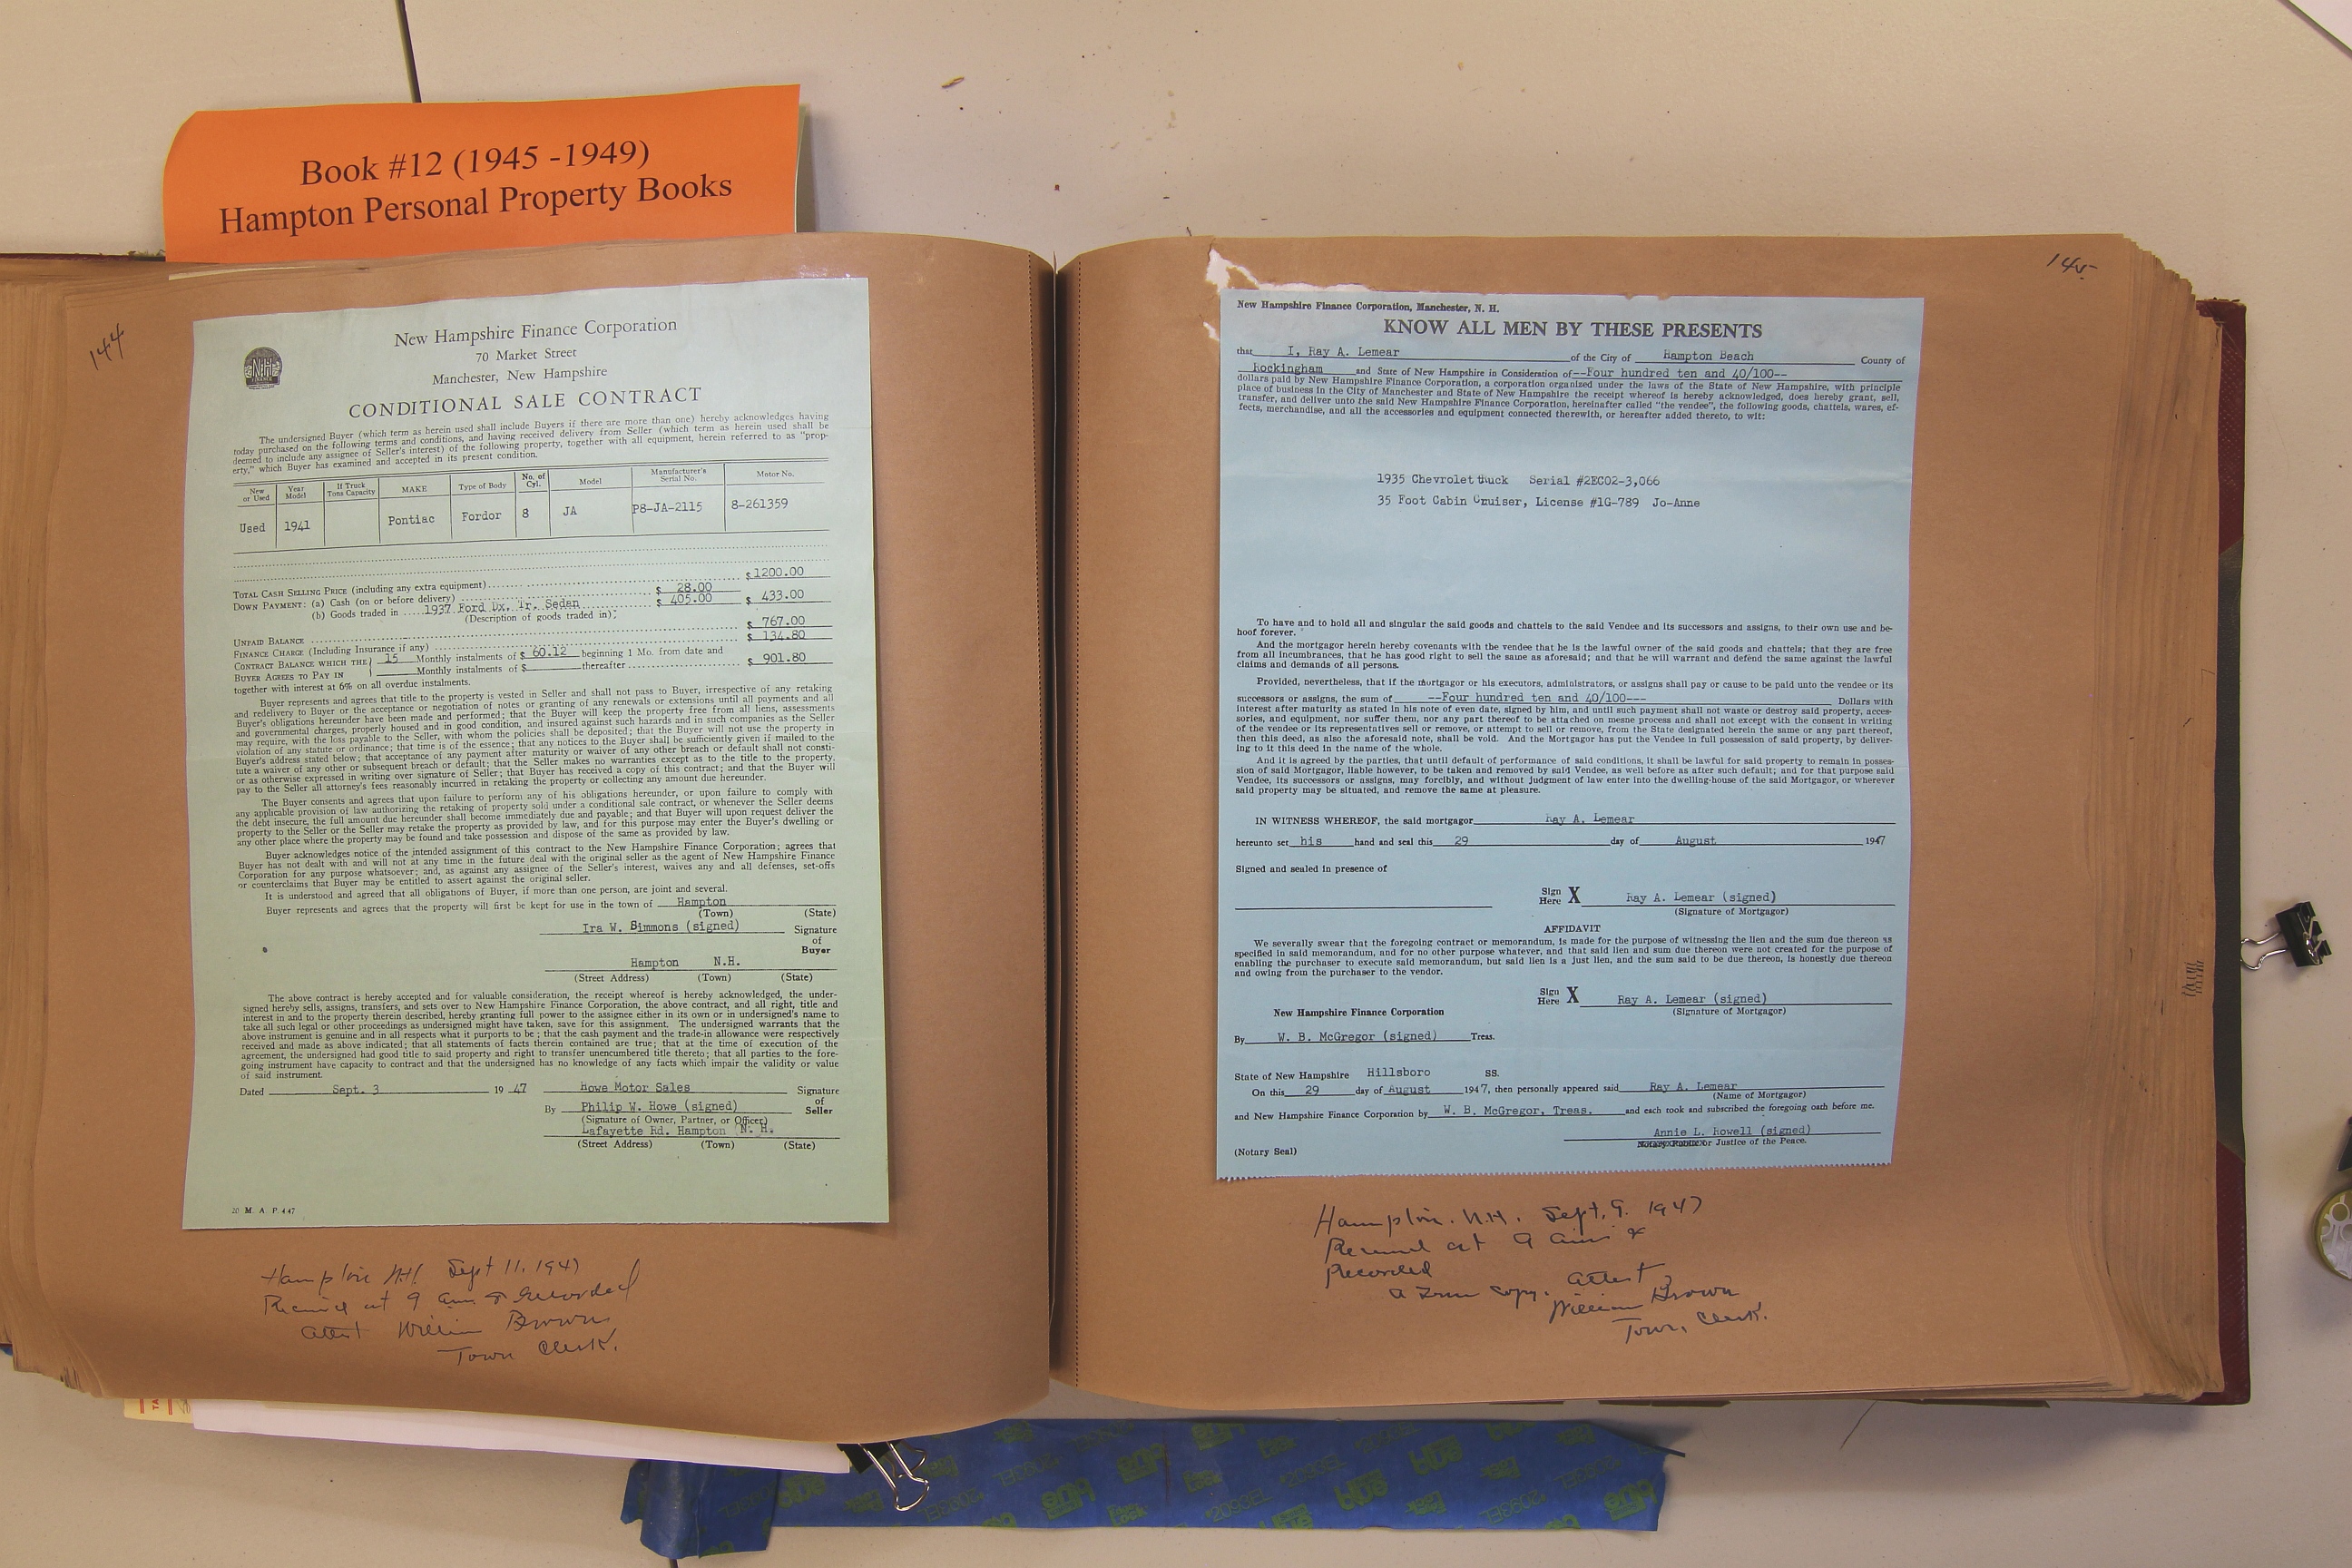 Book #12 (1945 -1949)
Hampton Personal Property Books
144
NH
New Hampshire Finance Corporation
70 Market Street
Manchester, New Hampshire
CONDITIONAL SALE CONTRACT
The undersigned Buyer (which term as herein used shall include Buyers if there are more than one) hereby acknowledges having
today purchased on the following terms and conditions, and having received delivery from Seller (which term as herein used shall be
deemed to include any assignee of Seller's interest) of the following property, together with all equipment, herein referred to as "prop-
erty," which Buyer has examined and accepted in its present condition.
New or Used Year Model If Truck Tons Capacity MAKE Type of Body No. of Cyl. Model Manufacturer's Serial No. Motor No.
Used 1941 Pontiac Fordor 8 JA P8-JA-2115 8-261359
TOTAL CASH SELLING PRICE (including any extra equipment) $ 1200.00
DOWN PAYMENT: (a) Cash (on or before delivery) $ 28.00
(b) Goods traded in 1937 Ford Dx. Tr. Sedan $ 405.00 $ 433.00
(Description of goods traded in)
UNPAID BALANCE $ 767.00
FINANCE CHARGE (Including Insurance if any) $ 134.80
CONTRACT BALANCE WHICH THE 15 Monthly instalments of $ 60.12 beginning 1 Mo. from date and
BUYER AGREES TO PAY IN Monthly instalments of $ thereafter $ 901.80
together with interest at 6% on all overdue instalments.
Buyer represents and agrees that title to the property is vested in Seller and shall not pass to Buyer, irrespective of any retaking
and redelivery to Buyer or the acceptance or negotiation of notes or granting of any renewals or extensions until all payments and all
Buyer's obligations hereunder have been made and performed; that the Buyer will keep the property free from all liens, assessments
and governmental charges, properly housed and in good condition, and insured against such hazards and in such companies as the Seller
may require, with the loss payable to the Seller, with whom the policies shall be deposited; that the Buyer will not use the property in
violation of any statute or ordinance; that time is of the essence; that any notices to the Buyer shall be sufficiently given if mailed to the
Buyer's address stated below; that acceptance of any payment after maturity or waiver of any other breach or default shall not consti-
tute a waiver of any other or subsequent breach or default; that the Seller makes no warranties except as to the title to the property,
or as otherwise expressed in writing over signature of Seller; that Buyer has received a copy of this contract; and that the Buyer will
pay to the Seller all attorney's fees reasonably incurred in retaking the property or collecting any amount due hereunder.
The Buyer consents and agrees that upon failure to perform any of his obligations hereunder, or upon failure to comply with
any applicable provision of law authorizing the retaking of property sold under a conditional sale contract, or whenever the Seller deems
the debt insecure, the full amount due hereunder shall become immediately due and payable; and that Buyer will upon request deliver the
property to the Seller or the Seller may retake the property as provided by law, and for this purpose may enter the Buyer's dwelling or
any other place where the property may be found and take possession and dispose of the same as provided by law.
Buyer acknowledges notice of the intended assignment of this contract to the New Hampshire Finance Corporation; agrees that
Buyer has not dealt with and will not at any time in the future deal with the original seller as the agent of New Hampshire Finance
Corporation for any purpose whatsoever; and, as against any assignee of the Seller's interest, waives any and all defenses, set-offs
or counterclaims that Buyer may be entitled to assert against the original seller.
It is understood and agreed that all obligations of Buyer, if more than one person, are joint and several.
Buyer represents and agrees that the property will first be kept for use in the town of Hampton
(Town) (State)
Ira W. Simmons (signed) Signature of Buyer
Hampton N.H.
(Street Address) (Town) (State)
The above contract is hereby accepted and for valuable consideration, the receipt whereof is hereby acknowledged, the under-
signed hereby sells, assigns, transfers, and sets over to New Hampshire Finance Corporation, the above contract, and all right, title and
interest in and to the property therein described, hereby granting full power to the assignee either in its own or in undersigned's name to
take all such legal or other proceedings as undersigned might have taken, save for this assignment. The undersigned warrants that the
above instrument is genuine and in all respects what it purports to be; that the cash payment and the trade-in allowance were respectively
received and made as above indicated; that all statements of facts therein contained are true; that at the time of execution of the
agreement, the undersigned had good title to said property and right to transfer unencumbered title thereto; that all parties to the fore-
going instrument have capacity to contract and that the undersigned has no knowledge of any facts which impair the validity or value
of said instrument.
Dated Sept. 3 19 47 Howe Motor Sales Signature of Seller
By Philip W. Howe (signed)
(Signature of Owner, Partner, or Officer)
Lafayette Rd. Hampton N. H.
(Street Address) (Town) (State)
20 M. A. P. 4 47
Hampton N.H. Sept 11, 1947
Received at 9 am & Recorded
Attest William Brown
Town Clerk.
145
New Hampshire Finance Corporation, Manchester, N. H.
KNOW ALL MEN BY THESE PRESENTS
that I, Ray A. Lemear of the City of Hampton Beach County of
Rockingham and State of New Hampshire in Consideration of --Four hundred ten and 40/100--
dollars paid by New Hampshire Finance Corporation, a corporation organized under the laws of the State of New Hampshire, with principle
place of business in the City of Manchester and State of New Hampshire the receipt whereof is hereby acknowledged, does hereby grant, sell,
transfer, and deliver unto the said New Hampshire Finance Corporation, hereinafter called "the vendee", the following goods, chattels, wares, ef-
fects, merchandise, and all the accessories and equipment connected therewith, or hereafter added thereto, to wit:
1935 Chevrolet truck Serial #2EC02-3,066
35 Foot Cabin Cruiser, License #1G-789 Jo-Anne
To have and to hold all and singular the said goods and chattels to the said Vendee and its successors and assigns, to their own use and be-
hoof forever.
And the mortgagor herein hereby covenants with the vendee that he is the lawful owner of the said goods and chattels; that they are free
from all incumbrances, that he has good right to sell the same as aforesaid; and that he will warrant and defend the same against the lawful
claims and demands of all persons.
Provided, nevertheless, that if the mortgagor or his executors, administrators, or assigns shall pay or cause to be paid unto the vendee or its
successors or assigns, the sum of --Four hundred ten and 40/100--- Dollars with
interest after maturity as stated in his note of even date, signed by him, and until such payment shall not waste or destroy said property, acces-
sories, and equipment, nor suffer them, nor any part thereof to be attached on mesne process and shall not except with the consent in writing
of the vendee or its representatives sell or remove, or attempt to sell or remove, from the State designated herein the same or any part thereof,
then this deed, as also the aforesaid note, shall be void. And the Mortgagor has put the Vendee in full possession of said property, by deliver-
ing to it this deed in the name of the whole.
And it is agreed by the parties, that until default of performance of said conditions, it shall be lawful for said property to remain in posses-
sion of said Mortgagor, liable however, to be taken and removed by said Vendee, as well before as after such default; and for that purpose said
Vendee, its successors or assigns, may forcibly, and without judgment of law enter into the dwelling-house of the said Mortgagor, or wherever
said property may be situated, and remove the same at pleasure.
IN WITNESS WHEREOF, the said mortgagor Ray A. Lemear
hereunto set his hand and seal this 29 day of August 1947
Signed and sealed in presence of
Sign Here X Ray A. Lemear (signed)
(Signature of Mortgagor)
AFFIDAVIT
We severally swear that the foregoing contract or memorandum, is made for the purpose of witnessing the lien and the sum due thereon as
specified in said memorandum, and for no other purpose whatever, and that said lien and sum due thereon were not created for the purpose of
enabling the purchaser to execute said memorandum, but said lien is a just lien, and the sum said to be due thereon, is honestly due thereon
and owing from the purchaser to the vendor.
Sign Here X Ray A. Lemear (signed)
(Signature of Mortgagor)
New Hampshire Finance Corporation
By W. B. McGregor (signed) Treas.
State of New Hampshire Hillsboro SS.
On this 29 day of August 1947, then personally appeared said Ray A. Lemear
(Name of Mortgagor)
and New Hampshire Finance Corporation by W. B. McGregor, Treas. and each took and subscribed the foregoing oath before me.
Annie L. Rowell (signed)
Notary Public or Justice of the Peace.
(Notary Seal)
Hampton. N.H. Sept. 9. 1947
Received at 9 am &
Recorded
a True copy. Attest
William Brown
Town, Clerk.